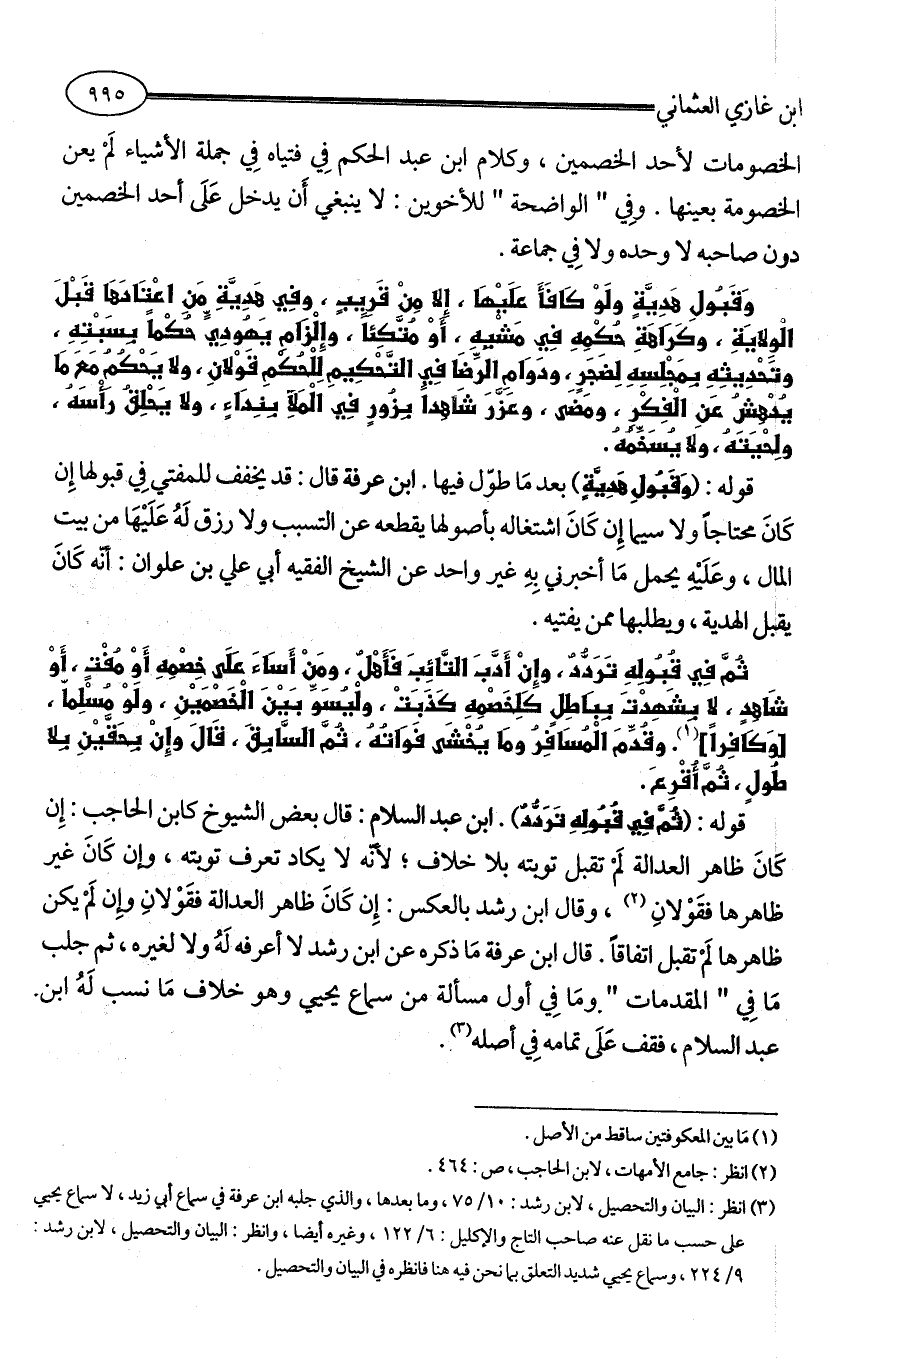 ابن غازي العثماني
٩٩٥
الخصومات لأحد الخصمين ، وكلام ابن عبد الحكم فِي فتياه فِي جملة الأشياء لَمْ يعن
الخصومة بعينها . وفِي " الواضحة " للأخوين : لا ينبغي أَن يدخل عَلَى أحد الخصمين
دون صاحبه لا وحده ولا فِي جماعة .
وَقَبُولِ هَدِيَّةٍ ولَوْ كَافَأَ عَلَيْهَا ، إِلا مِنْ قَرِيبٍ ، وفِي هَدِيَّةِ مَنِ اعْتَادَهَا قَبْلَ
الْوِلايَةِ ، وكَرَاهَةِ حُكْمِهِ فِي مَشْيِهِ ، أَوْ مُتَّكِئاً ، وإِلْزَامِ يَهُودِيٍّ حُكْماً بِسَبْتِهِ ،
وتَحْدِيثِهِ بِمَجْلِسِهِ لِضَجَرٍ ، ودَوَامِ الرِّضَا فِي التَّحْكِيمِ لِلْحُكْمِ قَوْلانِ ، ولا يَحْكُمُ مَعَ مَا
يُدْهِشُ عَنِ الْفِكْرِ ، ومَضَى ، وعَزَّرَ شَاهِداً بِزُورٍ فِي الْمَلأِ بِنِدَاءٍ ، ولا يَحْلِقُ رَأْسَهُ ،
ولِحْيَتَهُ ، ولا يُسَخِّمُهُ .
قوله : (وَقَبُولِ هَدِيَّةٍ) بعد مَا طوّل فيها . ابن عرفة قال : قد يخفف للمفتي فِي قبولها إِن
كَانَ محتاجاً ولا سيما إِن كَانَ اشتغاله بأصولها يقطعه عن التسبب ولا رزق لَهُ عَلَيْهَا من بيت
المال ، وعَلَيْهِ يحمل مَا أخبرني بِهِ غير واحد عن الشيخ الفقيه أبي علي بن علوان : أنّه كَانَ
يقبل الهدية ، ويطلبها ممن يفتيه .
ثُمَّ فِي قُبُولِهِ تَرَدُّدٌ ، وإِنْ أَدَّبَ التَّائِبَ فَأَهْلٌ ، ومَنْ أَسَاءَ عَلَى خَصْمِهِ أَوْ مُفْتٍ ، أَوْ
شَاهِدٍ ، لا بِشَهِدْتَ بِبَاطِلٍ كَلِخَصْمِهِ كَذَبَتْ ، ولْيُسَوِّ بَيْنَ الْخَصْمَيْنِ ، ولَوْ مُسْلِماً ،
[وَكَافِراً](١). وقُدِّمَ الْمُسَافِرُ ومَا يُخْشَى فَوَاتُهُ ، ثُمَّ السَّابِقُ ، قَالَ وإِنْ بِحَقَّيْنِ بِلا
طُولٍ ، ثُمَّ أُقْرِعَ .
قوله : (ثُمَّ فِي قُبُولِهِ تَرَدُّدٌ) . ابن عبد السلام : قال بعض الشيوخ كابن الحاجب : إن
كَانَ ظاهر العدالة لَمْ تقبل توبته بلا خلاف ؛ لأنّه لا يكاد تعرف توبته ، وإن كَانَ غير
ظاهرها فقَوْلانِ (٢) ، وقال ابن رشد بالعكس : إن كَانَ ظاهر العدالة فقَوْلانِ وإن لَمْ يكن
ظاهرها لَمْ تقبل اتفاقاً . قال ابن عرفة مَا ذكره عن ابن رشد لا أعرفه لَهُ ولا لغيره ، ثم جلب
مَا فِي " المقدمات " ومَا فِي أول مسألة من سماع يحيي وهو خلاف مَا نسب لَهُ ابن
عبد السلام ، فقف عَلَى تمامه فِي أصله(٣) .
(١) مَا بين المعكوفتين ساقط من الأصل .
(٢) انظر : جامع الأمهات ، لابن الحاجب ، ص : ٤٦٤ .
(٣) انظر : البيان والتحصيل ، لابن رشد : ١٠/ ٧٥ ، وما بعدها ، والذي جلبه ابن عرفة في سماع أبي زيد ، لا سماع يحيي
على حسب ما نقل عنه صاحب التاج والإكليل : ٦/ ١٢٢ ، وغيره أيضا ، وانظر : البيان والتحصيل ، لابن رشد :
٩/ ٢٢٤ ، وسماع يحيي شديد التعلق بما نحن فيه هنا فانظره في البيان والتحصيل .